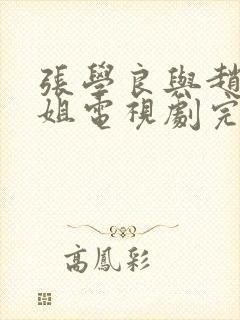 張學良與趙
姐電視劇完
高鳳彩